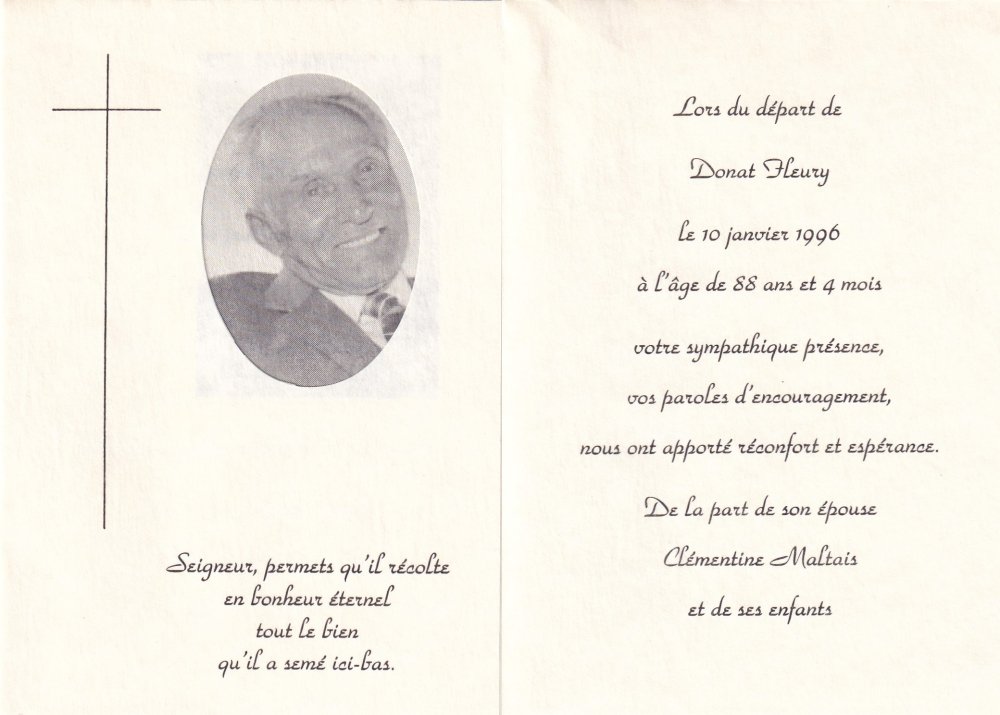 Seigneur, permets qu'il récolte
en bonheur éternel
tout le bien
qu'il a semé ici-bas.
Lors du départ de
Donat Fleury
le 10 janvier 1996
à l'âge de 88 ans et 4 mois
votre sympathique présence,
vos paroles d'encouragement,
nous ont apporté réconfort et espérance.
De la part de son épouse
Clémentine Maltais
et de ses enfants